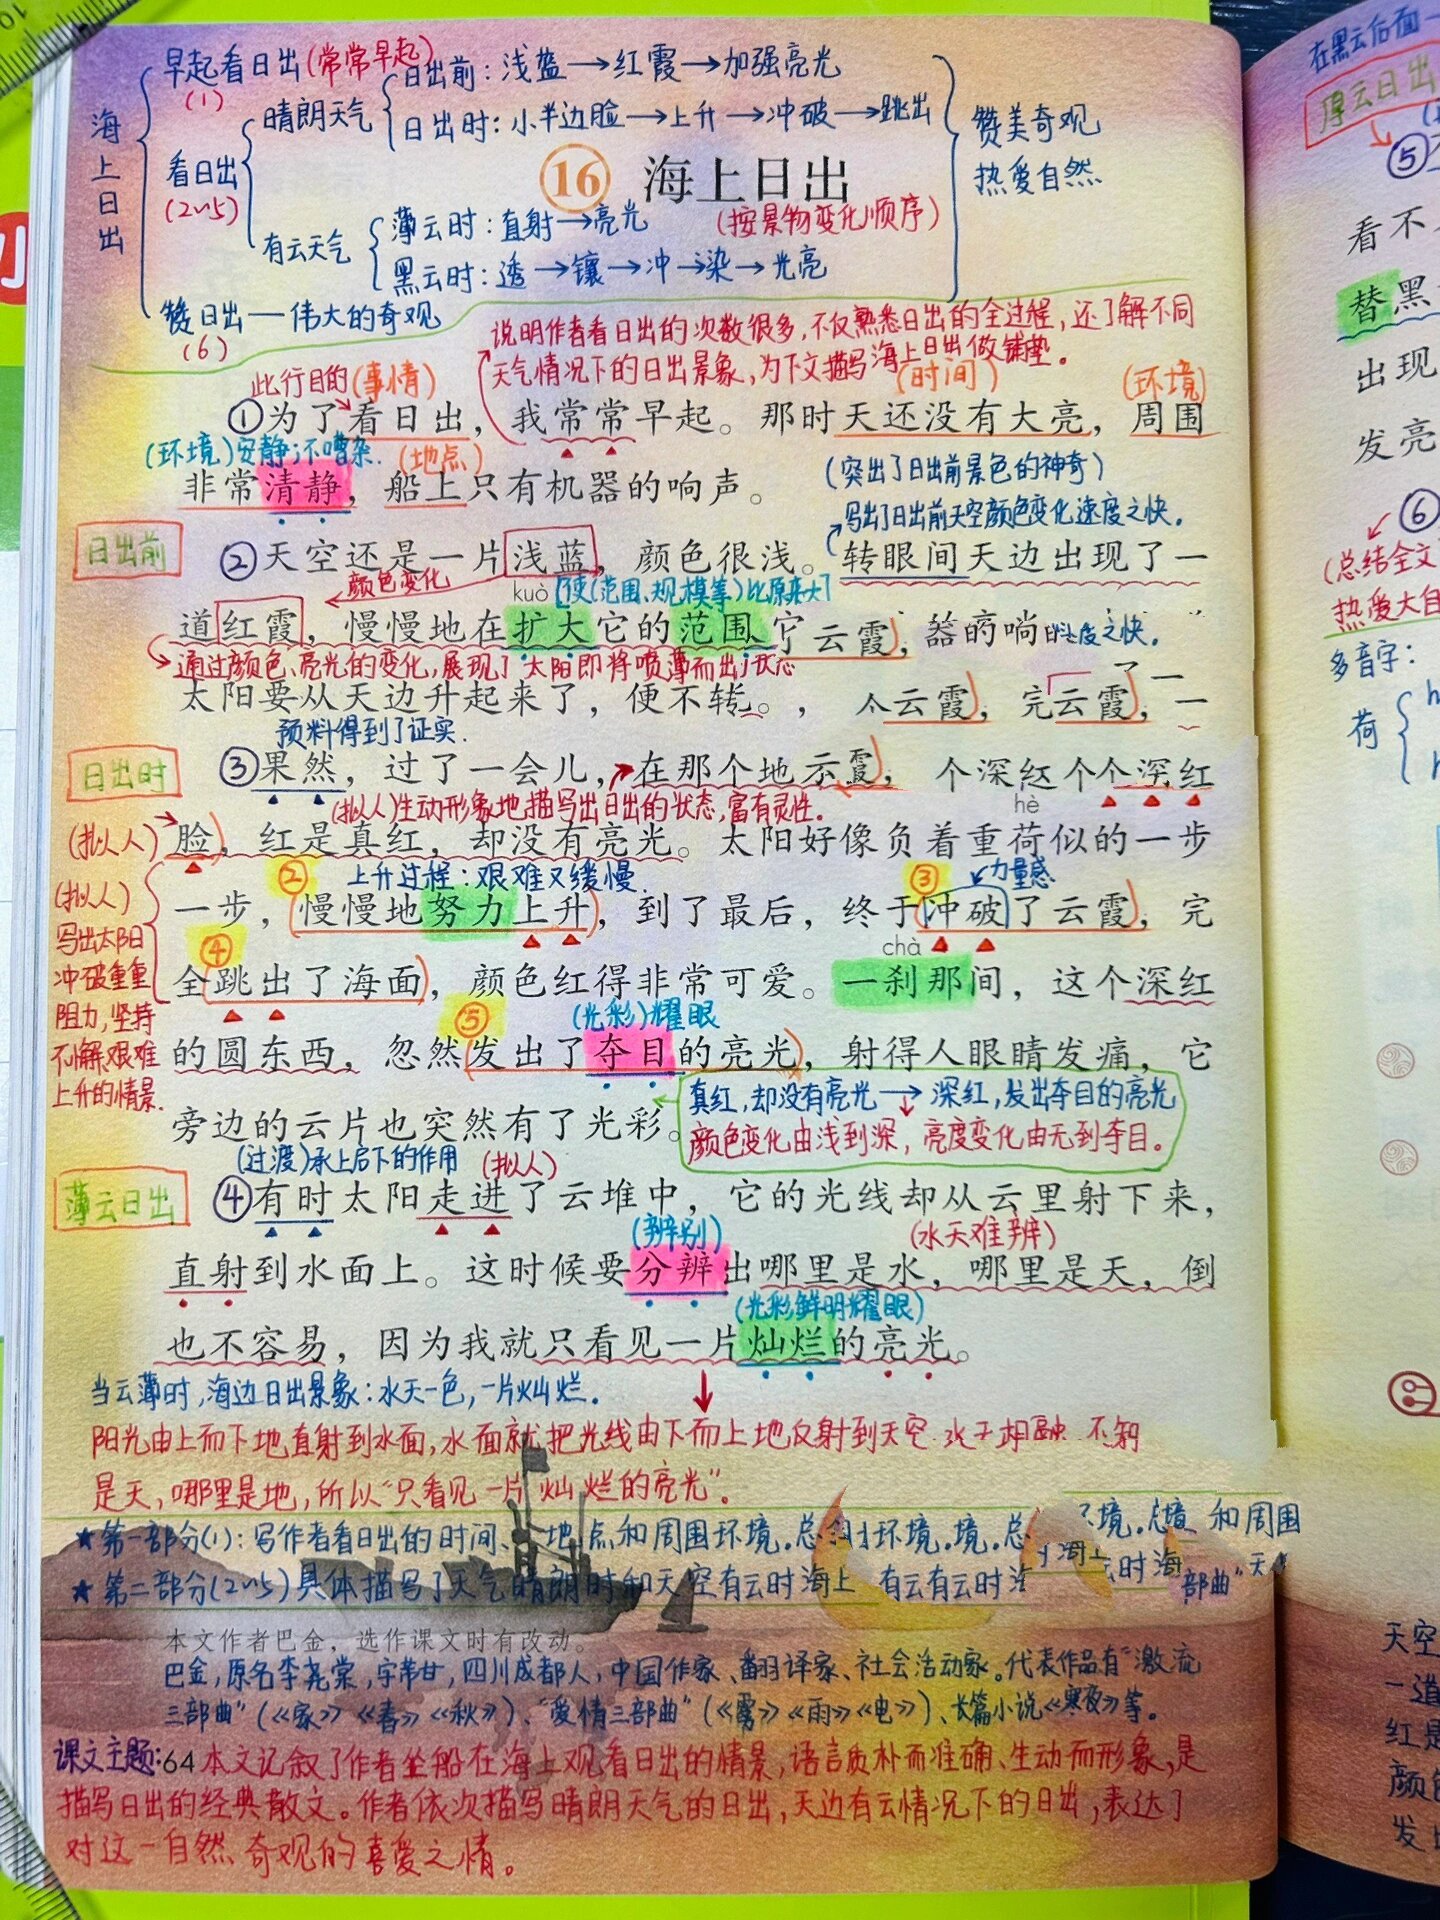 海上日出
早起看日出(常常早起)
(1)
看日出
(2~5)
晴朗天气
日出前：浅蓝→红霞→加强亮光
日出时：小半边脸→上升→冲破→跳出
有云天气
薄云时：直射→亮光
黑云时：透→镶→冲→染→光亮
(按景物变化顺序)
赞日出—伟大的奇观
(6)
赞美奇观
热爱自然
16 海上日出
说明作者看日出的次数很多,不仅熟悉日出的全过程,还了解不同
天气情况下的日出景象,为下文描写海上日出做铺垫。
此行目的(事情)
(时间)
(环境)
①为了看日出，我常常早起。那时天还没有大亮，周围
(环境)安静;不嘈杂.
(地点)
非常清静，船上只有机器的响声。
(突出了日出前景色的神奇)
写出了日出前天空颜色变化速度之快。
日出前
②天空还是一片浅蓝，颜色很浅。转眼间天边出现了一
颜色变化
kuò
[使(范围、规模等)比原来大]
道红霞，慢慢地在扩大它的范围
云霞
度之快.
通过颜色、亮光的变化,展现了太阳即将喷薄而出
太阳要从天边升起来了，便不转
云霞
云霞
预料得到了证实.
日出时
③果然，过了一会儿，在那个地
个深红
(拟人)生动形象地描写出日出的状态,富有灵性。
hè
(拟人)
脸，红是真红，却没有亮光。太阳好像负着重荷似的一步
② 上升过程：艰难又缓慢.
③ 力量感
(拟人)
写出太阳
冲破重重
阻力,坚持
不懈、艰难
上升的情景.
一步，慢慢地努力上升，到了最后，终于冲破了云霞，完
④
chà
全跳出了海面，颜色红得非常可爱。一刹那间，这个深红
⑤
(光彩)耀眼
的圆东西，忽然发出了夺目的亮光，射得人眼睛发痛，它
真红,却没有亮光→深红,发出夺目的亮光
颜色变化由浅到深,亮度变化由无到夺目。
旁边的云片也突然有了光彩。
(过渡)承上启下的作用
(拟人)
薄云日出
④有时太阳走进了云堆中，它的光线却从云里射下来，
(辨别)
(水天难辨)
直射到水面上。这时候要分辨出哪里是水，哪里是天，倒
(光彩鲜明耀眼)
也不容易，因为我就只看见一片灿烂的亮光。
当云薄时,海边日出景象：水天一色,一片灿烂.
阳光由上而下地直射到水面,水面就把光线由下而上地反射到天空
是天,哪里是地,所以"只看见一片灿烂的亮光"。
★第一部分(1)：写作者看日出的时间、地点和周围环境.总
环境.
和周围
★第二部分(2~5)具体描写了天气晴朗时和天空有云时海上
有云有云时
云时海
部曲"
本文作者巴金，选作课文时有改动。
巴金,原名李尧棠,字芾甘,四川成都人,中国作家、翻译家、社会活动家。代表作品有"激流
三部曲"(《家》《春》《秋》)、"爱情三部曲"(《雾》《雨》《电》)、长篇小说《寒夜》等。
课文主题:64本文记叙了作者坐船在海上观看日出的情景,语言质朴而准确、生动而形象,是
描写日出的经典散文。作者依次描写晴朗天气的日出,天边有云情况下的日出,表达了
对这一自然奇观的喜爱之情。
在黑云后面
厚云日出
⑤
看不
替黑
出现
发亮
⑥
(总结全文
热爱大自
多音字：
荷
天空
一道
红是
颜色
发出